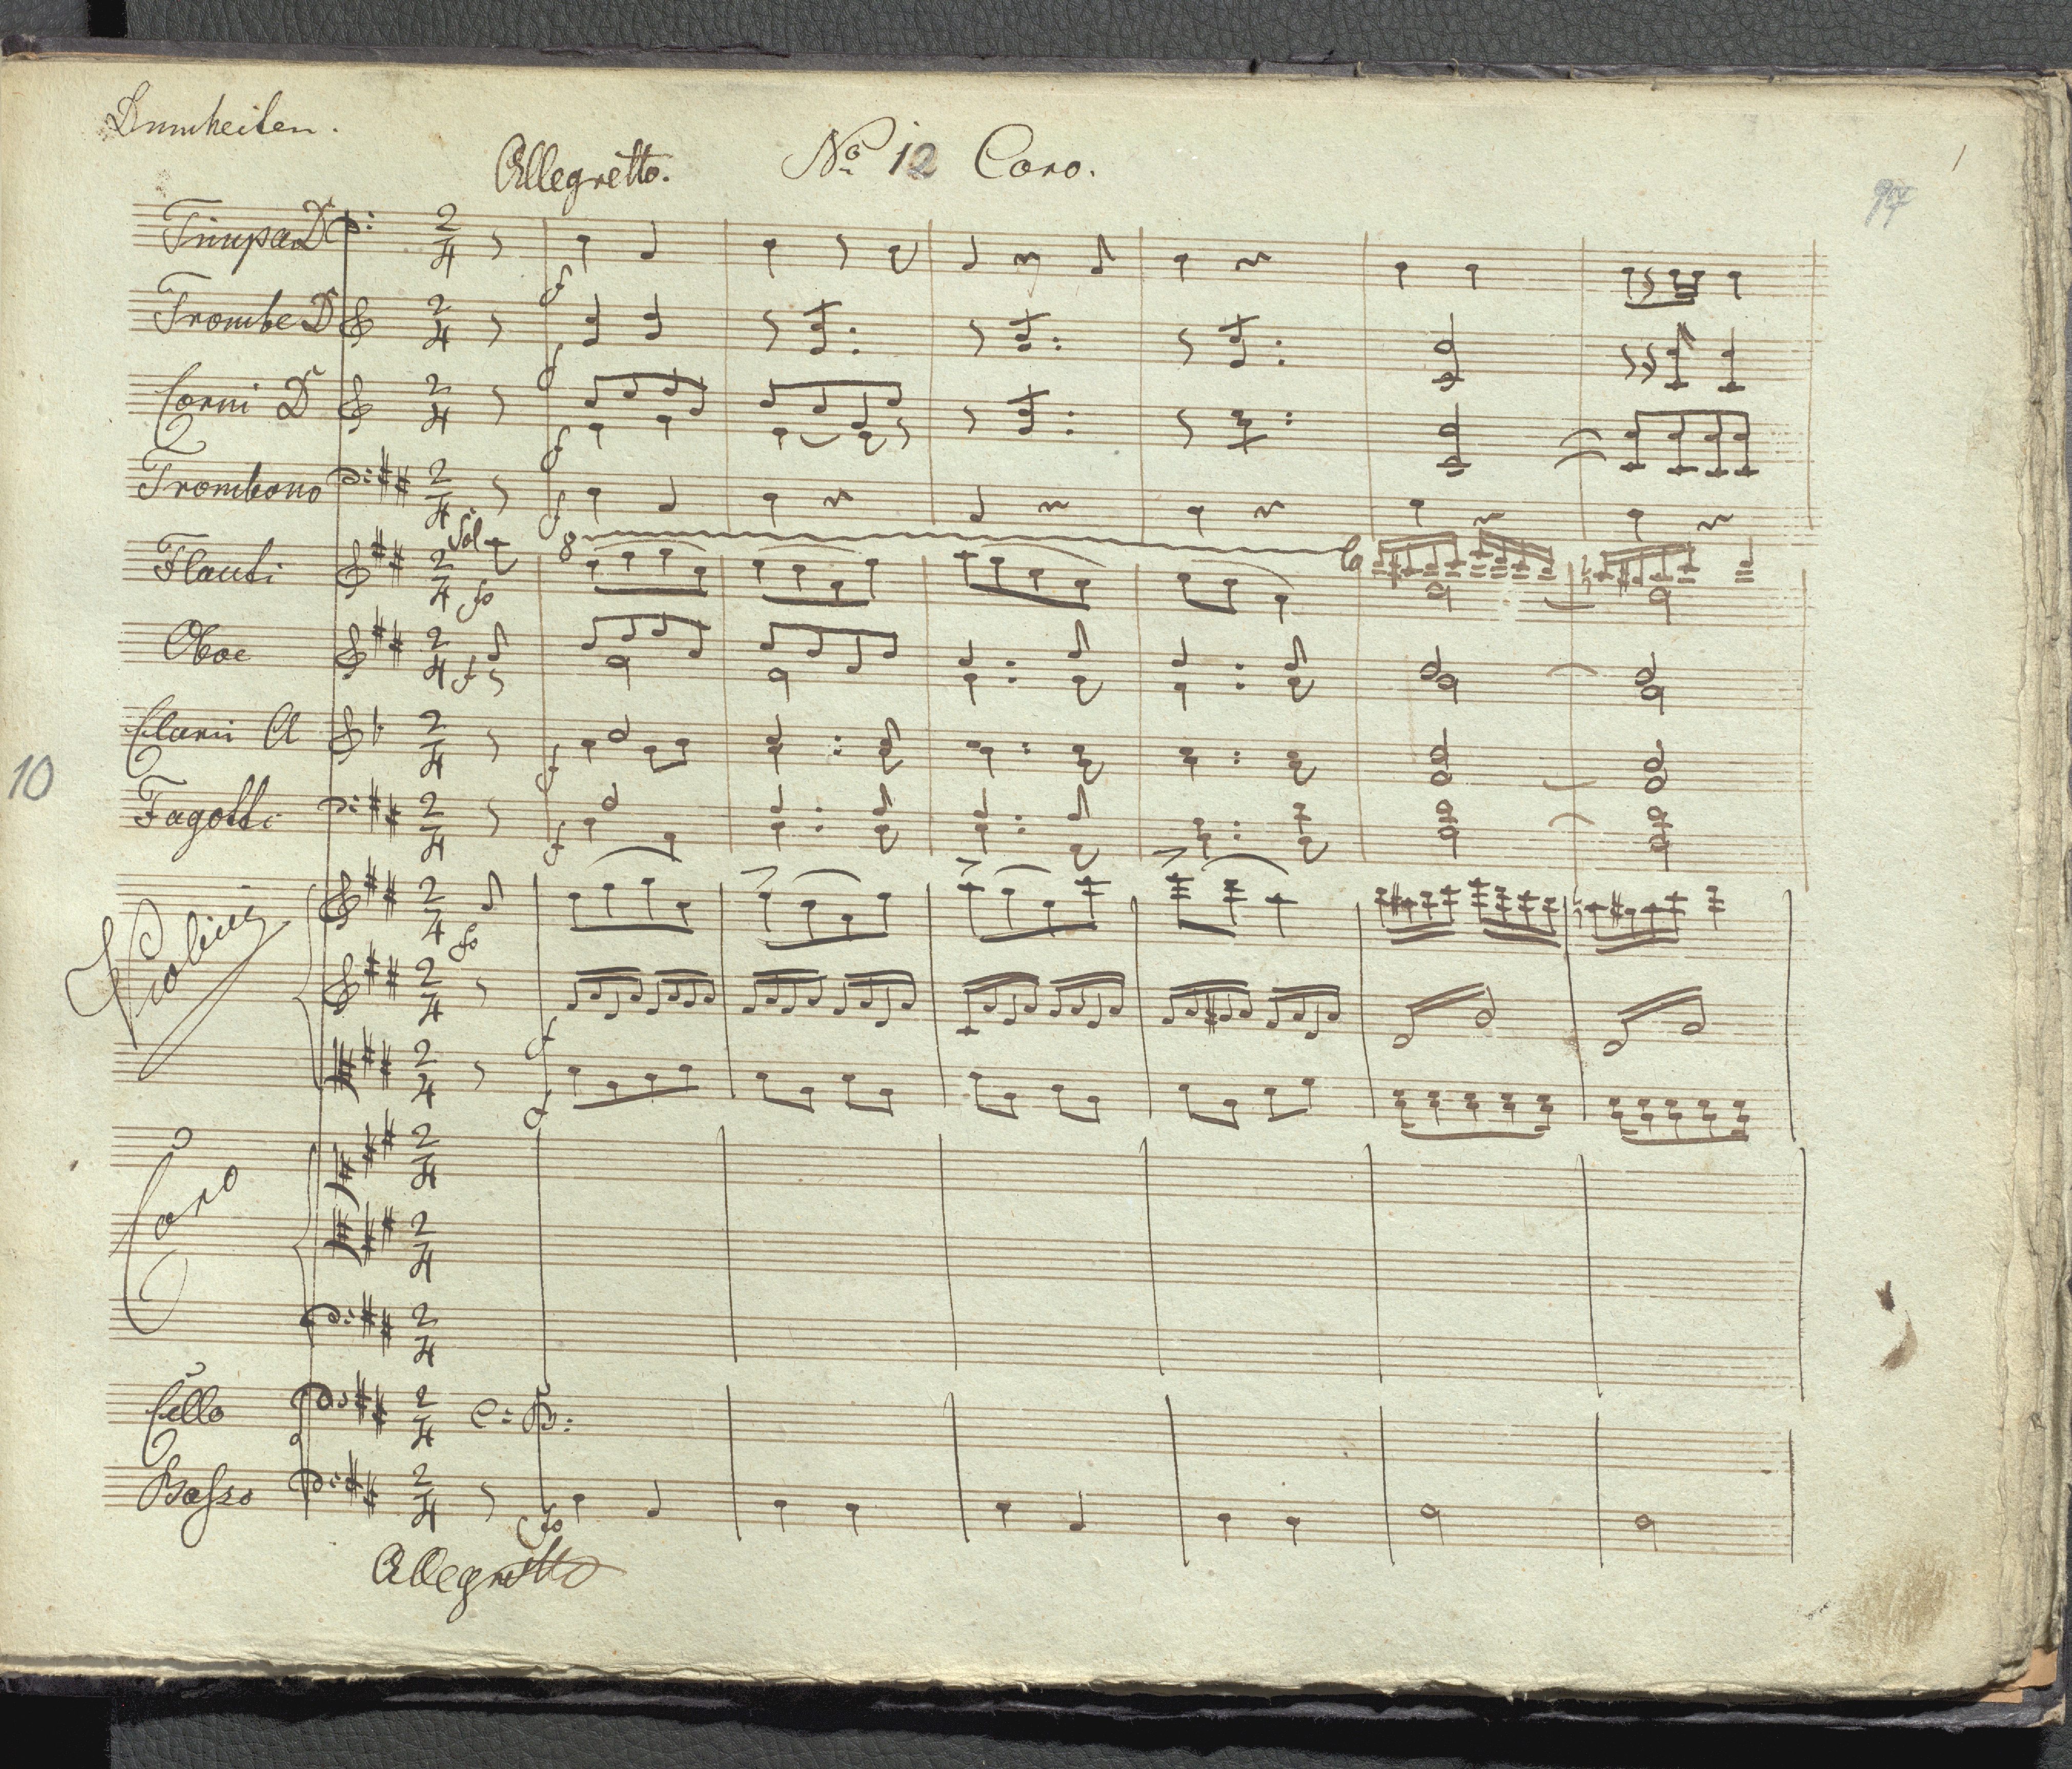 Dumheiten.
Allegretto. No 12 Coro.
1
97
Timpa D
Trombe D
Corni D
Trombono
Sol
8
Flauti
fo
Oboe
Clarii A
10
Fagotti
Violini
fo
Coro
Cello C: B:
Basso
fo
Allegretto